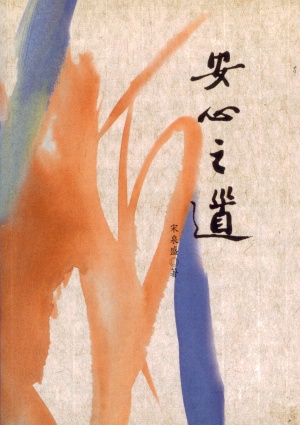 安心之道
宋泉盛 著